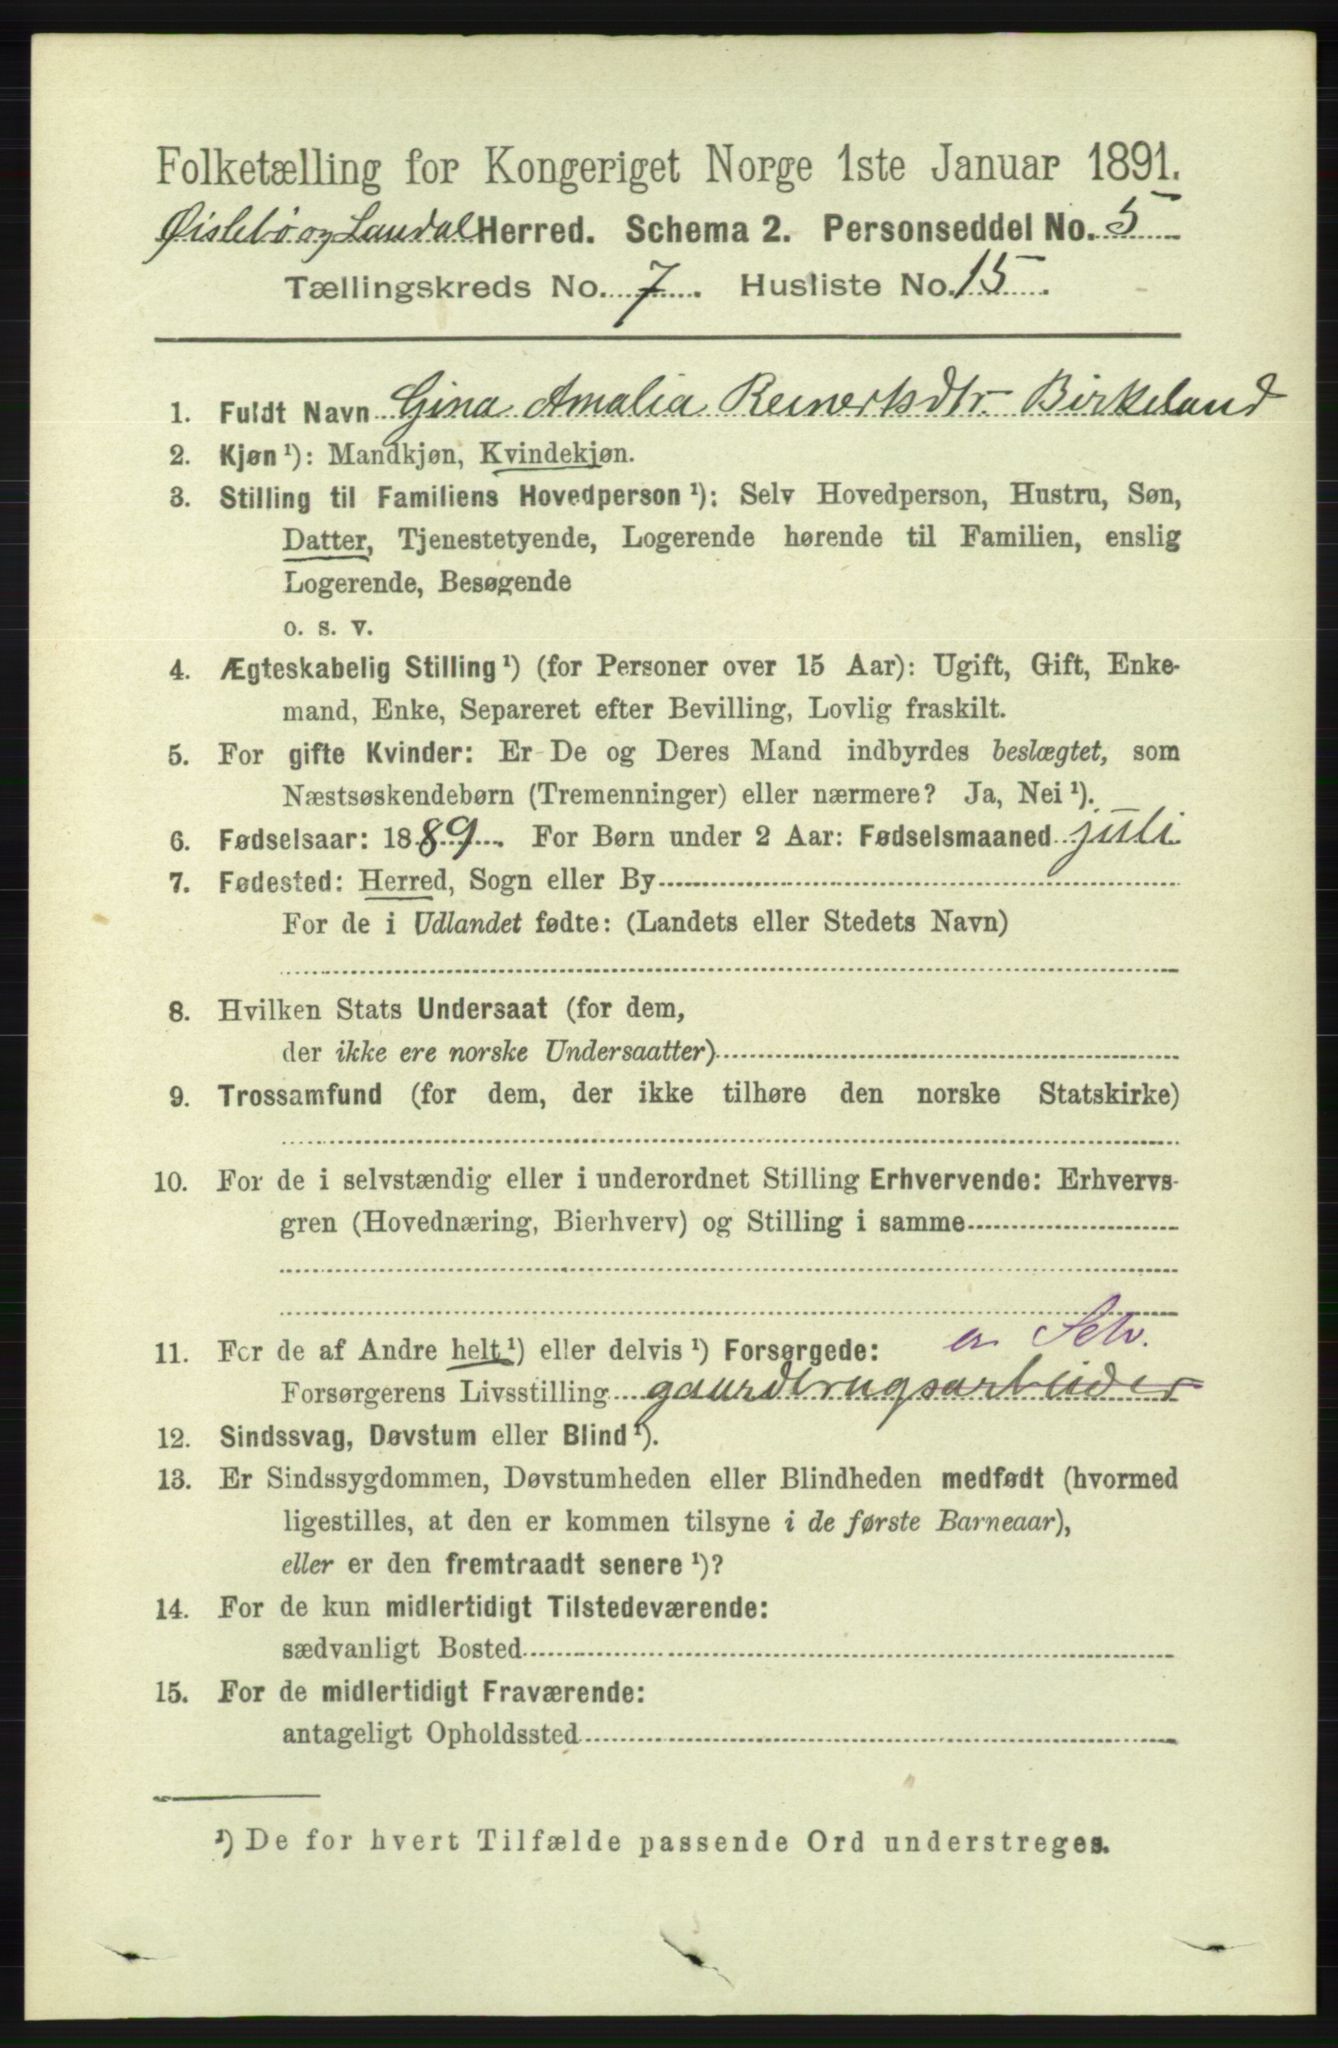 Folketælling for Kongeriget Norge 1ste Januar 1891.
Øislebø og Laudal Herred. Schema 2. Personseddel No. 5
Tællingskreds No. 7. Husliste No. 15.
1. Fuldt Navn Gina Amalia Reinertsdtr. Birkeland
2. Kjøn¹): Mandkjøn, Kvindekjøn.
3. Stilling til Familiens Hovedperson¹): Selv Hovedperson, Hustru, Søn,
Datter, Tjenestetyende, Logerende hørende til Familien, enslig
Logerende, Besøgende
o. s. v.
4. Ægteskabelig Stilling¹) (for Personer over 15 Aar): Ugift, Gift, Enke-
mand, Enke, Separeret efter Bevilling, Lovlig fraskilt.
5. For gifte Kvinder: Er De og Deres Mand indbyrdes beslægtet, som
Næstsøskendebørn (Tremenninger) eller nærmere? Ja, Nei¹).
6. Fødselsaar: 1889. For Børn under 2 Aar: Fødselsmaaned juli.
7. Fødested: Herred, Sogn eller By
For de i Udlandet fødte: (Landets eller Stedets Navn)
8. Hvilken Stats Undersaat (for dem,
der ikke ere norske Undersaatter)
9. Trossamfund (for dem, der ikke tilhøre den norske Statskirke)
10. For de i selvstændig eller i underordnet Stilling Erhvervende: Erhvervs-
gren (Hovednæring, Bierhverv) og Stilling i samme
11. For de af Andre helt¹) eller delvis¹) Forsørgede: Selv.
Forsørgerens Livsstilling gaardbrugsarbeider
12. Sindssvag, Døvstum eller Blind¹).
13. Er Sindssygdommen, Døvstumheden eller Blindheden medfødt (hvormed
ligestilles, at den er kommen tilsyne i de første Barneaar),
eller er den fremtraadt senere¹)?
14. For de kun midlertidigt Tilstedeværende:
sædvanligt Bosted
15. For de midlertidigt Fraværende:
antageligt Opholdssted
¹) De for hvert Tilfælde passende Ord understreges.